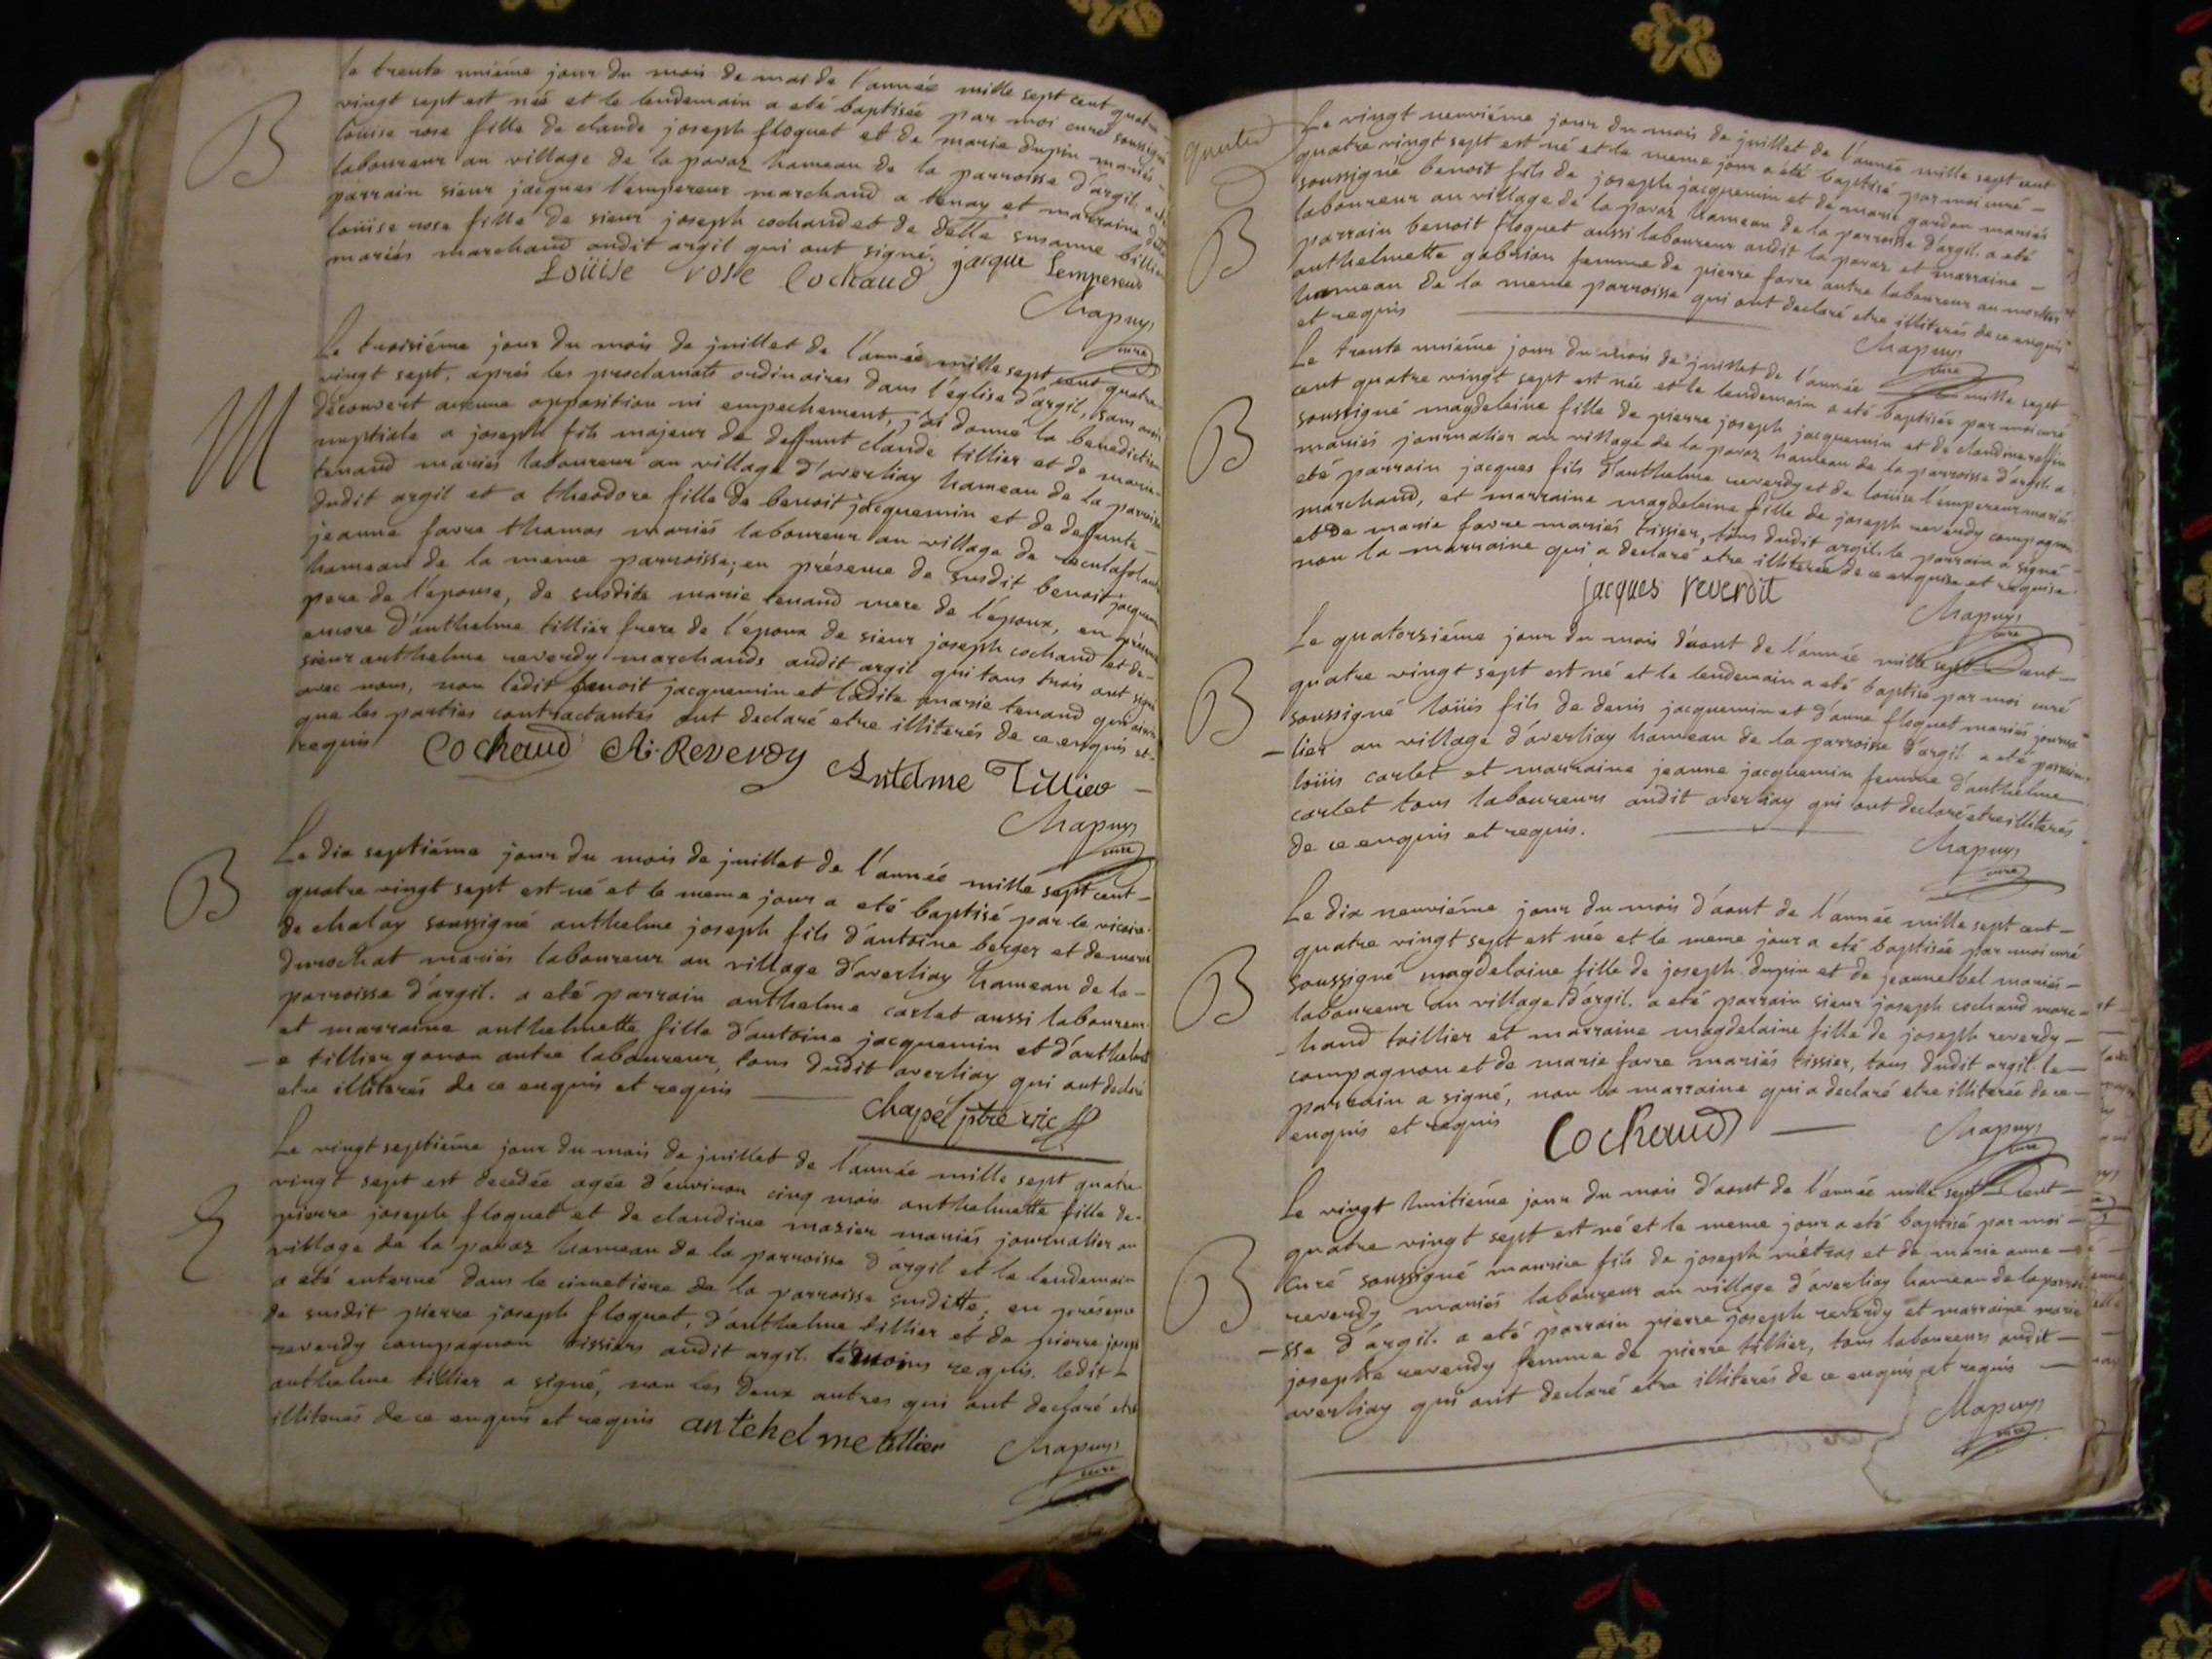 B
le trente unième jour du mois de mai de l'année mille sept cent quatre
vingt sept est née et le lendemain a eté baptisée par moi curé soussigné
louise rose fille de claude joseph floquet et de marie dupin mariés
laboureur au village de la pavaz hameau de la parroisse d'argil. a eté
parrain sieur jacques l'empereur marchand a tenay et marraine delle
loüise rose fille de sieur joseph cochaud et de delle susanne billion
mariés marchand audit argil qui ont signé.
Loüise rose Cochaud jacque Lempereur
Chapuy
curé
M
Le troisiéme jour du mois de juillet de l'année mille sept cent quatre
vingt sept. aprés les proclamats ordinaires dans l'église d'argil, sans avoir
découvert aucune opposition ni empechement, j'ai donné la benediction
nuptiale a joseph fils majeur de deffunt claude tillier et de marie
tenand mariés laboureur au village d'averliay hameau de la parroisse
dudit argil et a theodore fille de benoit jacquemin et de deffunte
jeanne favre thomas mariés laboureur au village de
hameau de la meme parroisse; en présence de susdit benoit jacquemin
pere de l'épouse, de susdite marie tenand mere de l'époux, en présence
encore d'anthelme tillier frere de l'époux de sieur joseph cochaud et de
sieur anthelme reverdy marchands audit argil qui tous trois ont signé
avec nous, non ledit benoit jacquemin et ladite marie tenand qui ainsi
que les parties contractantes ont declaré etre illiterés de ce enquis et
requis
Cochaud A. Reverdy Antelme Tillier
Chapuy
curé
B
Le dix septiéme jour du mois de juillet de l'année mille sept cent
quatre vingt sept est né et le meme jour a eté baptisé par le vicaire
de chalay soussigné anthelme joseph fils d'antoine berger et de marie
durochat mariés laboureur au village d'averliay hameau de la
parroisse d'argil. a eté parrain anthelme carlet aussi laboureur
et marraine anthelmette fille d'antoine jacquemin et d'anthelmet
- e tillier gonon autre laboureur, tous dudit averliay qui ont declaré
etre illiterés de ce enquis et requis
Chapel ptre vic
Le vingt septiéme jour du mois de juillet de l'année mille sept quatre
vingt sept est decedée agée d'environ cinq mois anthelmette fille de
pierre joseph floquet et de claudine mazier mariés journalier au
village de la pavaz hameau de la parroisse d'argil et le lendemain
a eté enterré dans le cimetiere de la parroisse susditte; en présence
de susdit pierre joseph floquet, d'anthelme tillier et de pierre joseph
reverdy compagnon tissiers audit argil. témoins requis. ledit
anthelme tillier a signé, non les deux autres qui ont declaré etre
illiterés de ce enquis et requis
antehelme tillier
Chapuy
curé
B
Le vingt neuviéme jour du mois de juillet de l'année mille sept cent
quatre vingt sept est né et le meme jour a eté baptisé par moi curé
soussigné benoit fils de joseph jacquemin et de marie gardon mariés
laboureur au village de la pavaz hameau de la parroisse d'argil. a eté
parrain benoit floquet aussi laboureur audit la pavaz et marraine
anthelmette gabrion femme de pierre favre autre laboureur au
hameau de la meme parroisse qui ont declaré etre illiterés de ce enquis
et requis
Chapuy
curé
B
Le trente unième jour du mois de juillet de l'année mille sept
cent quatre vingt sept est née et le lendemain a eté baptisée par moi curé
soussigné magdeleine fille de pierre joseph jacquemin et de claudine
mariés journalier au village de la pavaz hameau de la parroisse d'argil. a
eté parrain jacques fils d'anthelme reverdy et de loüise l'empereur mariés
marchand, et marraine magdeleine fille de joseph reverdy compagnon
et de marie favre mariés tissier, tous dudit argil. le parrain a signé
non la marraine qui a declaré etre illiterée de ce enquise et requise.
jacques reverdit
Chapuy
curé
B
Le quatorziéme jour du mois d'aout de l'année mille sept cent
quatre vingt sept est né et le lendemain a eté baptisé par moi curé
soussigné loüis fils de denis jacquemin et d'anne floquet mariés journa
- lier au village d'averliay hameau de la parroisse d'argil a eté parrain
loüis carlet et marraine jeanne jacquemin femme d'anthelme
carlet tous laboureurs audit averliay qui ont declaré etre illiterés
de ce enquis et requis.
Chapuy
curé
B
Le dix neuviéme jour du mois d'aout de l'année mille sept cent
quatre vingt sept est née et le meme jour a eté baptisée par moi curé
soussigné magdelaine fille de joseph dupin et de jeanne bel mariés
laboureur au village d'argil. a eté parrain sieur joseph cochaud marc
- hand toillier et marraine magdelaine fille de joseph reverdy
compagnon et de marie favre mariés tissier, tous dudit argil. le
parrain a signé, non la marraine qui a declaré etre illiterée de ce
enquis et requis
Cochaud
Chapuy
curé
B
Le vingt huitiéme jour du mois d'aout de l'année mille sept cent
quatre vingt sept est né et le meme jour a eté baptisé par moi
curé soussigné maurice fils de joseph métras et de marie anne
reverdy mariés laboureur au village d'averliay hameau de la parroi
- sse d'argil. a eté parrain pierre joseph reverdy et marraine marie
josephe reverdy femme de pierre tillier, tous laboureurs audit
averliay qui ont declaré etre illiterés de ce enquis et requis
Chapuy
curé